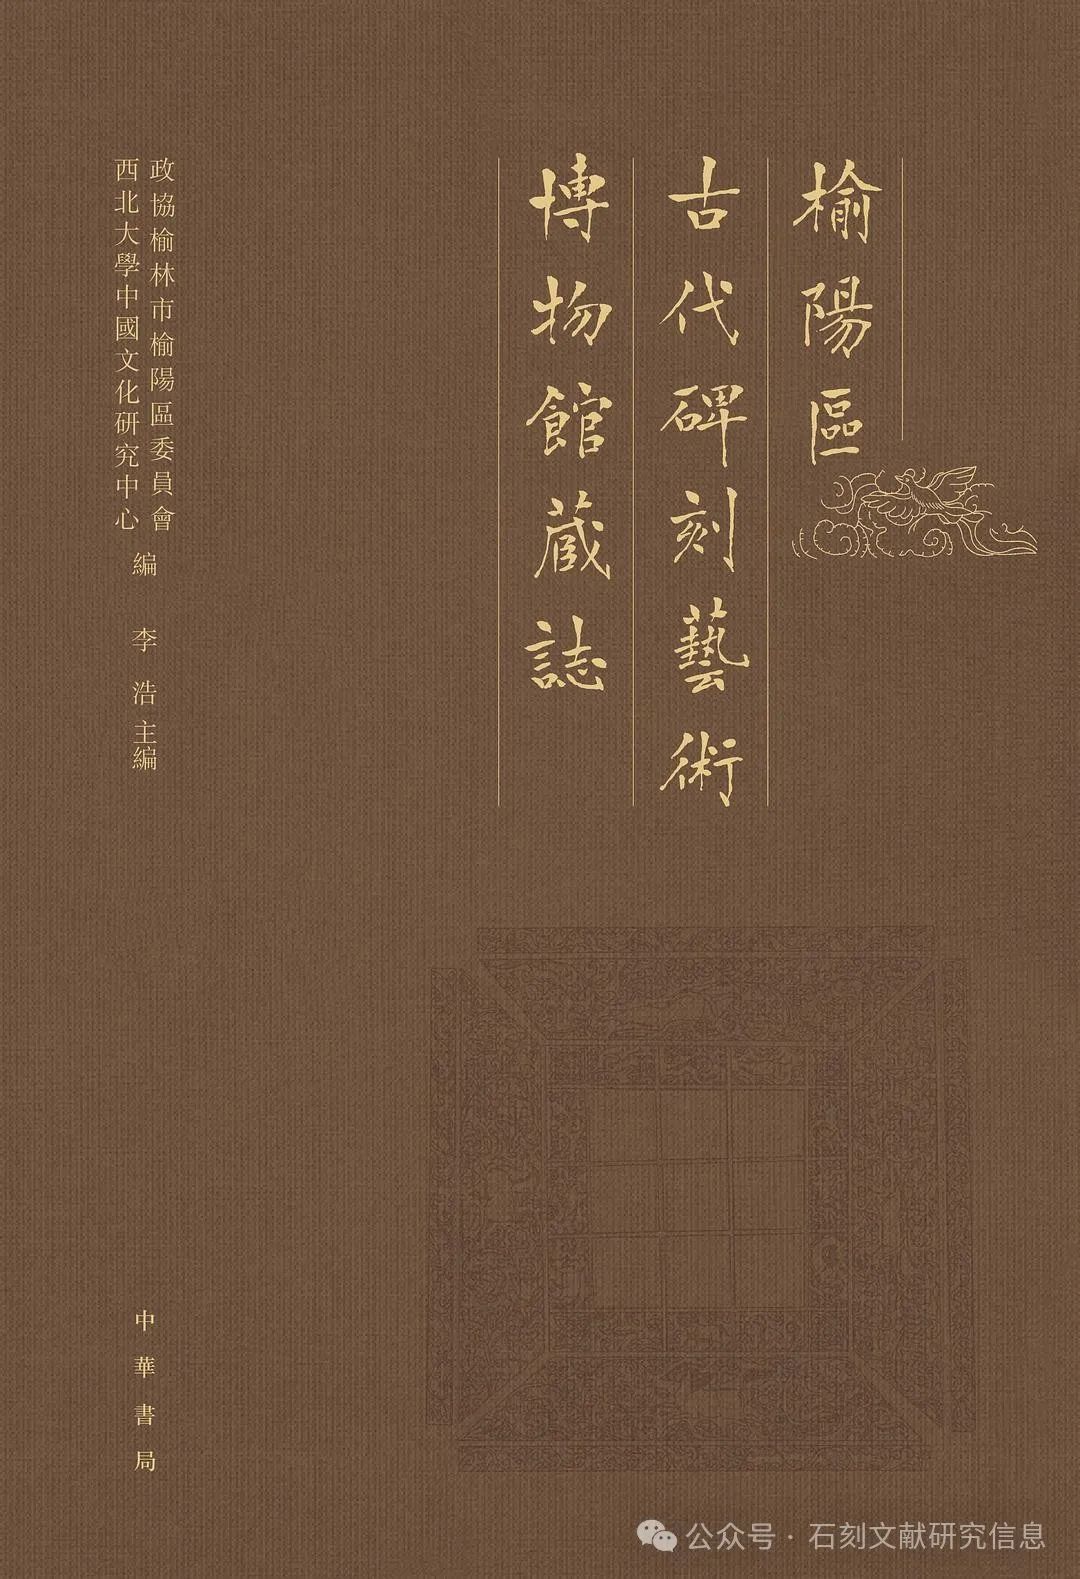 榆陽區
古代碑刻藝術
博物館蔵誌
政協榆林市榆陽區委員會
西北大學中國文化研究中心
編
李浩主編
中華書局
公众号·石刻文献研究信息